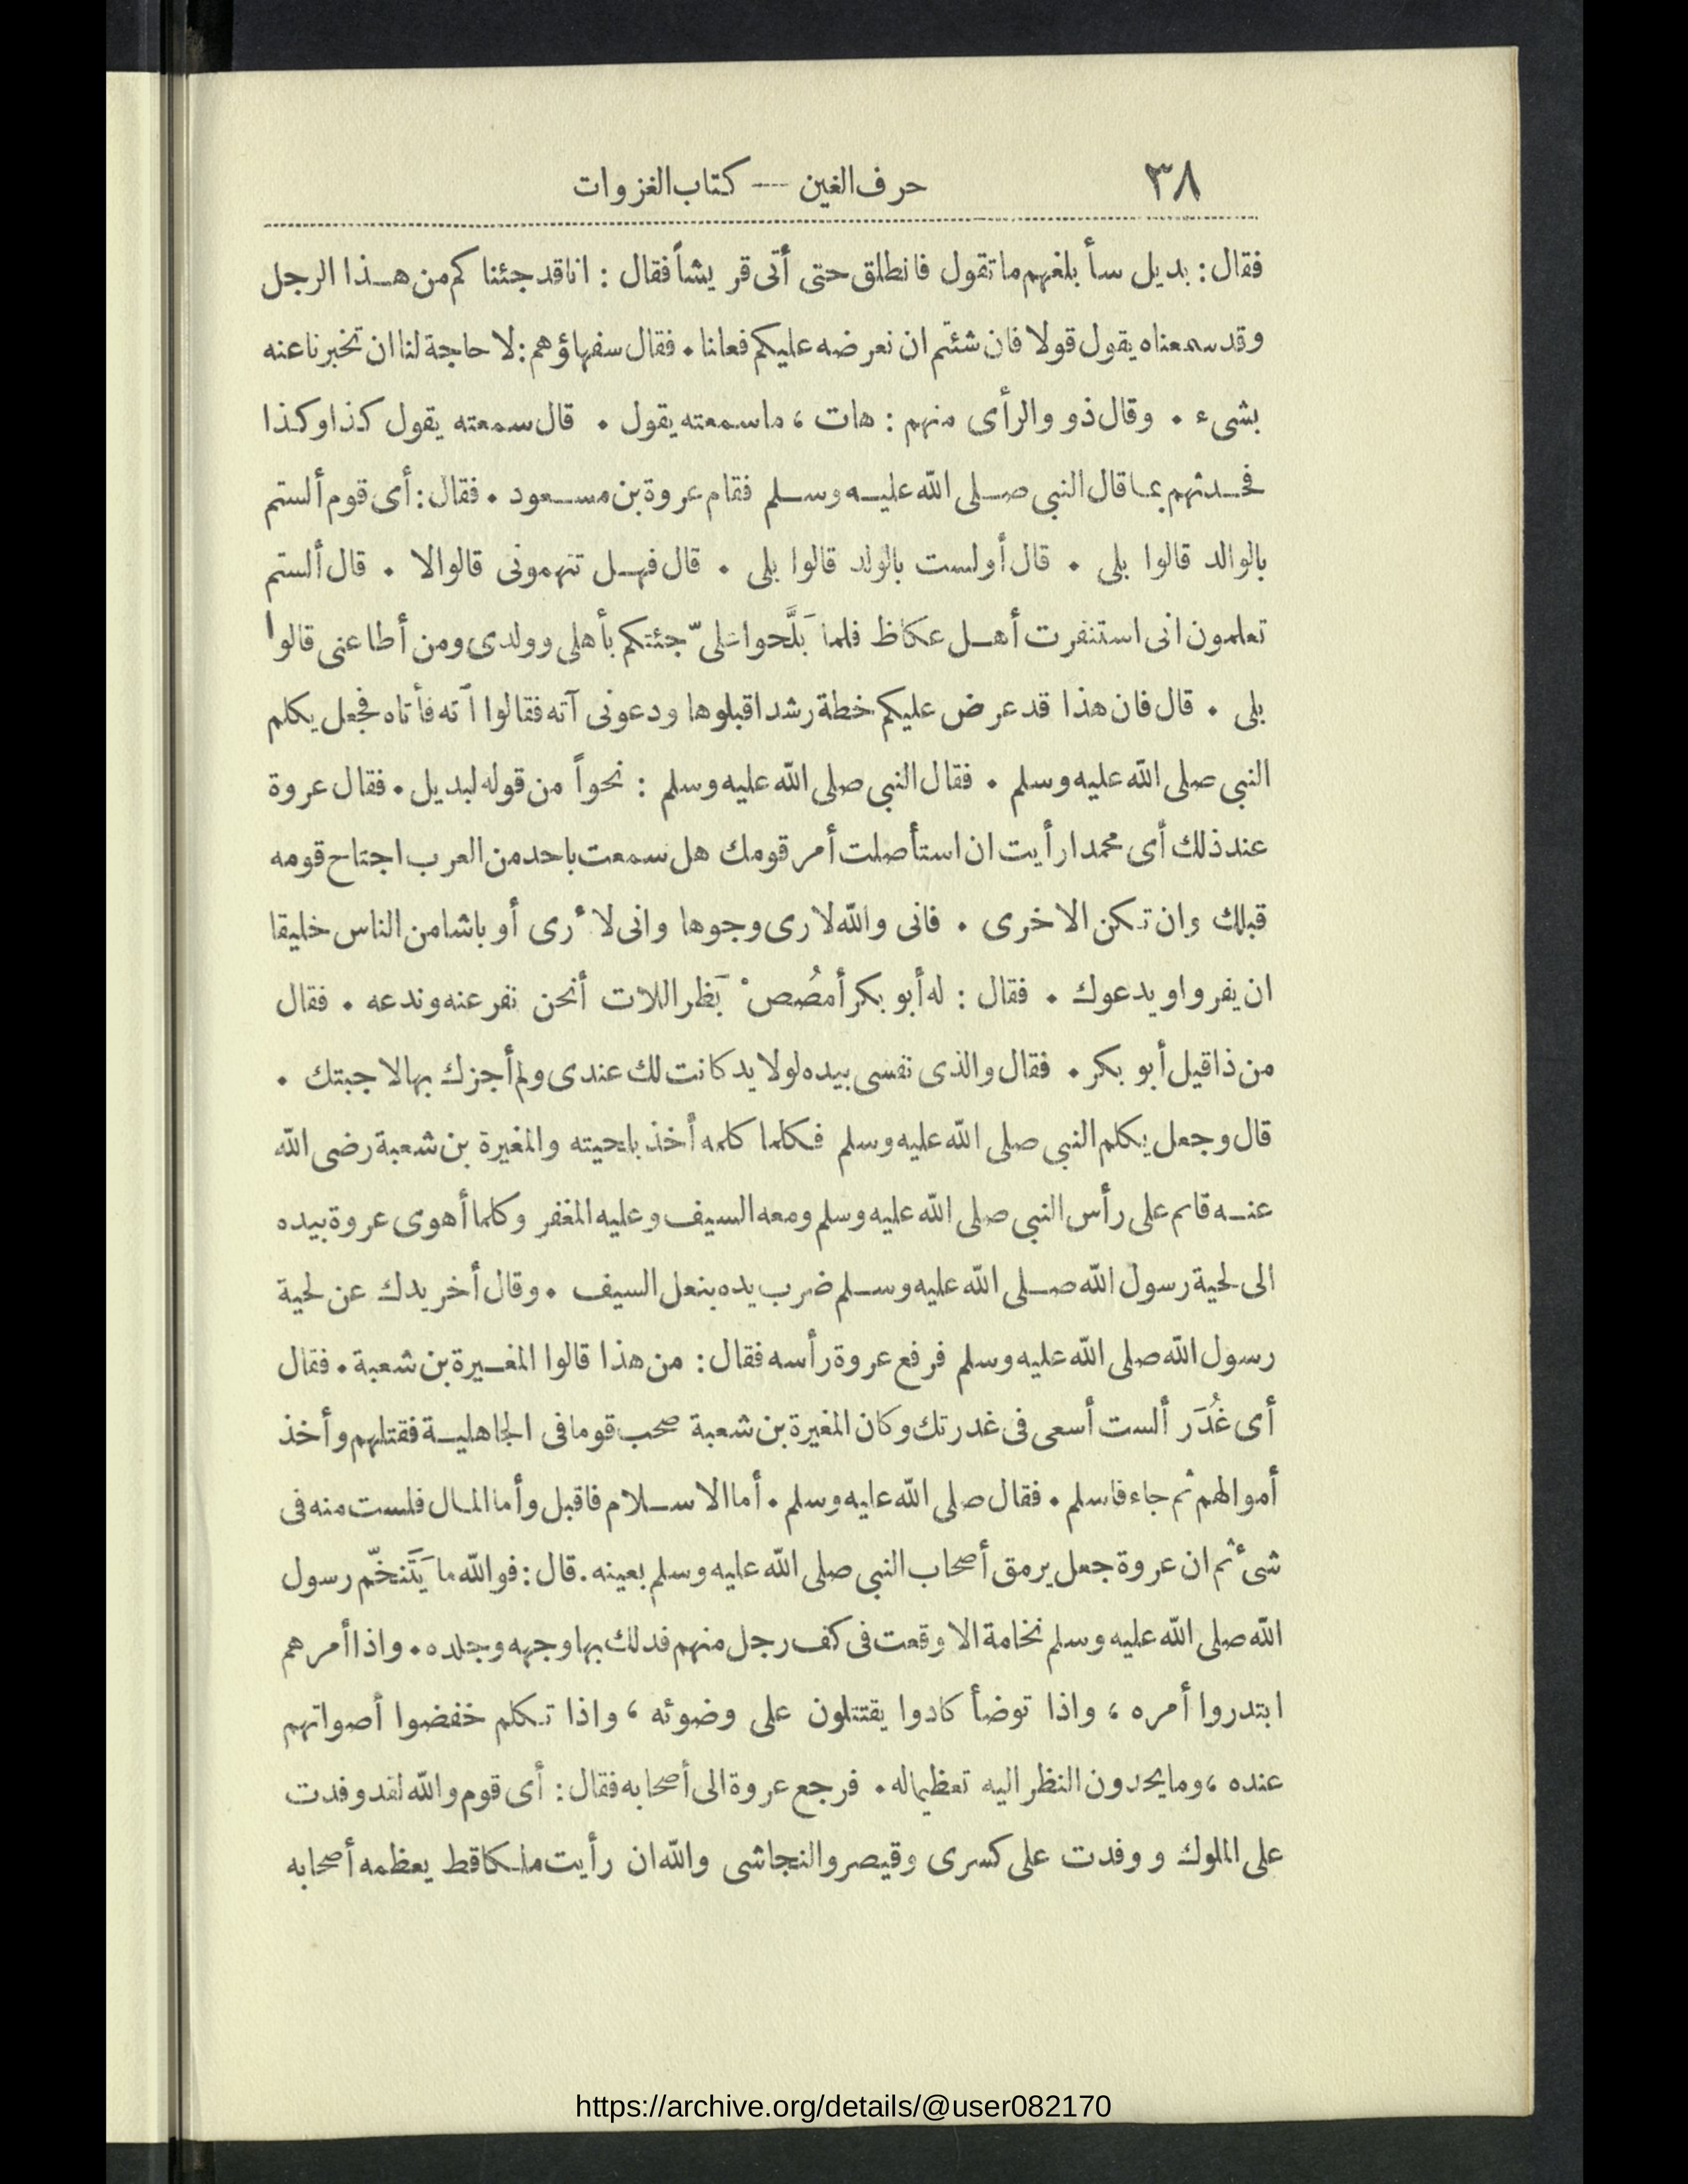 ٣٨ حرف الغين — كتاب الغزوات
فقال: بديل سأبلغهم ما تقول فانطلق حتى أتى قريشاً فقال : انا قد جئناكم من هذا الرجل
وقد سمعناه يقول قولا فان شئتم ان نعرضه عليكم فعلنا . فقال سفهاؤهم : لا حاجة لنا ان تخبرنا عنه
بشىء . وقال ذوو الرأى منهم : هات ، ما سمعته يقول . قال سمعته يقول كذا وكذا
فحدثهم بما قال النبى صلى الله عليه وسلم فقام عروة بن مسعود . فقال : أى قوم ألستم
بالوالد قالوا بلى . قال أولست بالولد قالوا بلى . قال فهل تتهمونى قالوا لا . قال ألستم
تعلمون انى استنفرت أهل عكاظ فلما بَلَّحوا علىّ جئتكم بأهلى وولدى ومن أطاعنى قالوا
بلى . قال فان هذا قد عرض عليكم خطة رشد اقبلوها ودعونى آته فقالوا آته فأتاه فجعل يكلم
النبى صلى الله عليه وسلم . فقال النبى صلى الله عليه وسلم : نحواً من قوله لبديل . فقال عروة
عند ذلك أى محمد ارأيت ان استأصلت أمر قومك هل سمعت باحد من العرب اجتاح قومه
قبلك وان تكن الاخرى . فانى والله لارى وجوها وانى لأرى أوباشا من الناس خليقا
ان يفروا ويدعوك . فقال : له أبو بكر أمصُصْ بَظر اللات أنحن نفر عنه وندعه . فقال
من ذا قيل أبو بكر . فقال والذى نفسى بيده لولا يد كانت لك عندى ولم أجزك بها لاجبتك .
قال وجعل يكلم النبى صلى الله عليه وسلم فكلما كلمه أخذ بلحيته والمغيرة بن شعبة رضى الله
عنه قائم على رأس النبى صلى الله عليه وسلم ومعه السيف وعليه المغفر وكلما أهوى عروة بيده
الى لحية رسول الله صلى الله عليه وسلم ضرب يده بنعل السيف . وقال أخر يدك عن لحية
رسول الله صلى الله عليه وسلم فرفع عروة رأسه فقال : من هذا قالوا المغيرة بن شعبة . فقال
أى غُدَر ألست أسعى فى غدرتك وكان المغيرة بن شعبة صحب قوما فى الجاهلية فقتلهم وأخذ
أموالهم ثم جاء فاسلم . فقال صلى الله عليه وسلم . أما الاسلام فاقبل وأما المال فلست منه فى
شىء ثم ان عروة جعل يرمق أصحاب النبى صلى الله عليه وسلم بعينه . قال : فوالله ما يَتَنخّم رسول
الله صلى الله عليه وسلم نخامة الا وقعت فى كف رجل منهم فدلك بها وجهه وجلده . واذا أمرهم
ابتدروا أمره ، واذا توضأ كادوا يقتتلون على وضوئه ، واذا تكلم خفضوا أصواتهم
عنده ، وما يحدون النظر اليه تعظيما له . فرجع عروة الى أصحابه فقال : أى قوم والله لقد وفدت
على الملوك ووفدت على كسرى وقيصر والنجاشى والله ان رأيت ملكا قط يعظمه أصحابه
https://archive.org/details/@user082170